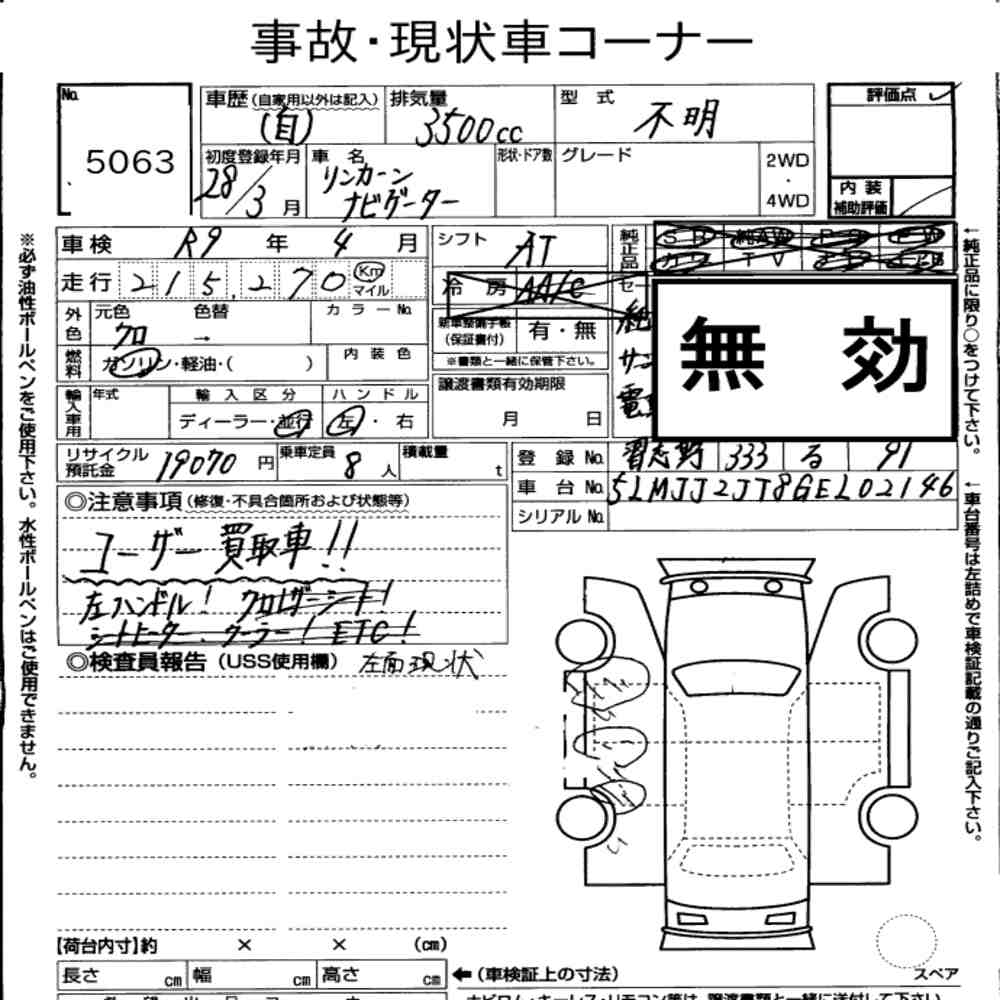 事故・現状車コーナー
No. 5063
車歴(自家用以外は記入) (自)
排気量 3500cc
型式 不明
評価点
初度登録年月 28/3月
車名 リンカーン
ナビゲーター
形状・ドア数
グレード
2WD
・
4WD
内装
補助評価
車検 R9年 4月
シフト AT
純正品
走行 215,270 Km
マイル
冷房 AA/C
外色 元色 クロ 色替 → カラーNo.
新車整備手帳
(保証書付) 有・無
燃料 ガソリン・軽油・( ) 内装色
※書類と一緒に保管下さい。
無 効
輸入車用 年式 輸入区分 ハンドル
ディーラー・並行 左・右
譲渡書類有効期限
月 日
リサイクル
預託金 19070円 乗車定員 8人 積載量 t
登録No. 習志野 333 る 91
車台No. 5LMJJ2JT8GEL02146
シリアルNo.
◎注意事項(修復・不具合箇所および状態等)
ユーザー買取車!!
左ハンドル! クロレザーシート!
シートヒーター、クーラー! ETC!
◎検査員報告(USS使用欄) 左面現状
【荷台内寸】約 × × (cm)
長さ cm 幅 cm 高さ cm
←(車検証上の寸法)
スペア
※必ず油性ボールペンをご使用下さい。水性ボールペンはご使用できません。
←純正品に限り○をつけて下さい。
←車台番号は左詰めで車検証記載の通りご記入下さい。